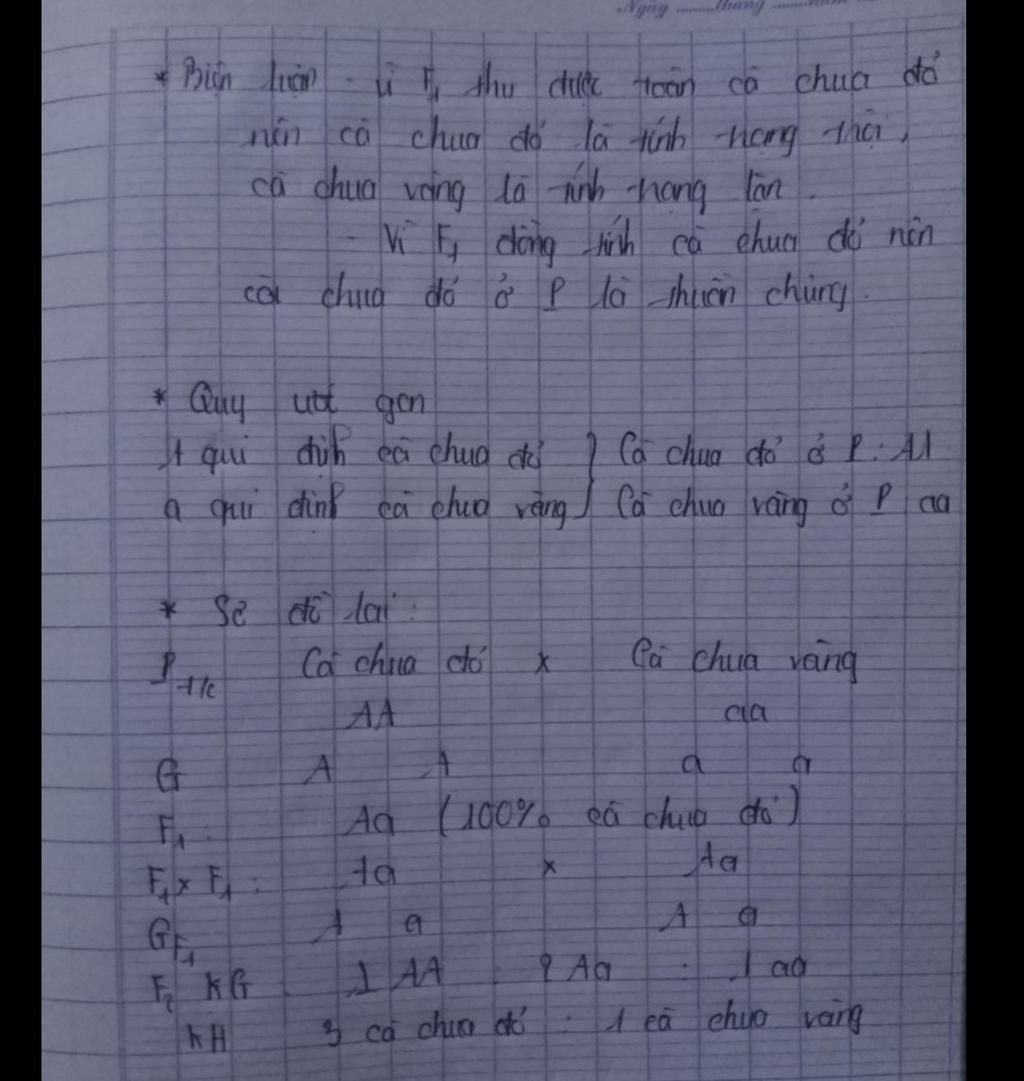 Ngày ........tháng ........năm
* Biện luận - Vì F1 thu được toàn cà chua đỏ
nên cà chua đỏ là tính trạng trội,
cà chua vàng là tính trạng lặn.
- Vì F1 đồng tính cà chua đỏ nên
cà chua đỏ ở P là thuần chủng.
* Quy ước gen
A qui định cà chua đỏ } Cà chua đỏ ở P: AA
a qui định cà chua vàng } Cà chua vàng ở P aa
* Sơ đồ lai:
P t/c Cà chua đỏ x Cà chua vàng
AA aa
G A A a a
F1: Aa (100% cà chua đỏ)
F1 x F1: Aa x Aa
GF1 A a A a
F2 KG 1 AA : 2 Aa : 1 aa
KH 3 cà chua đỏ : 1 cà chua vàng